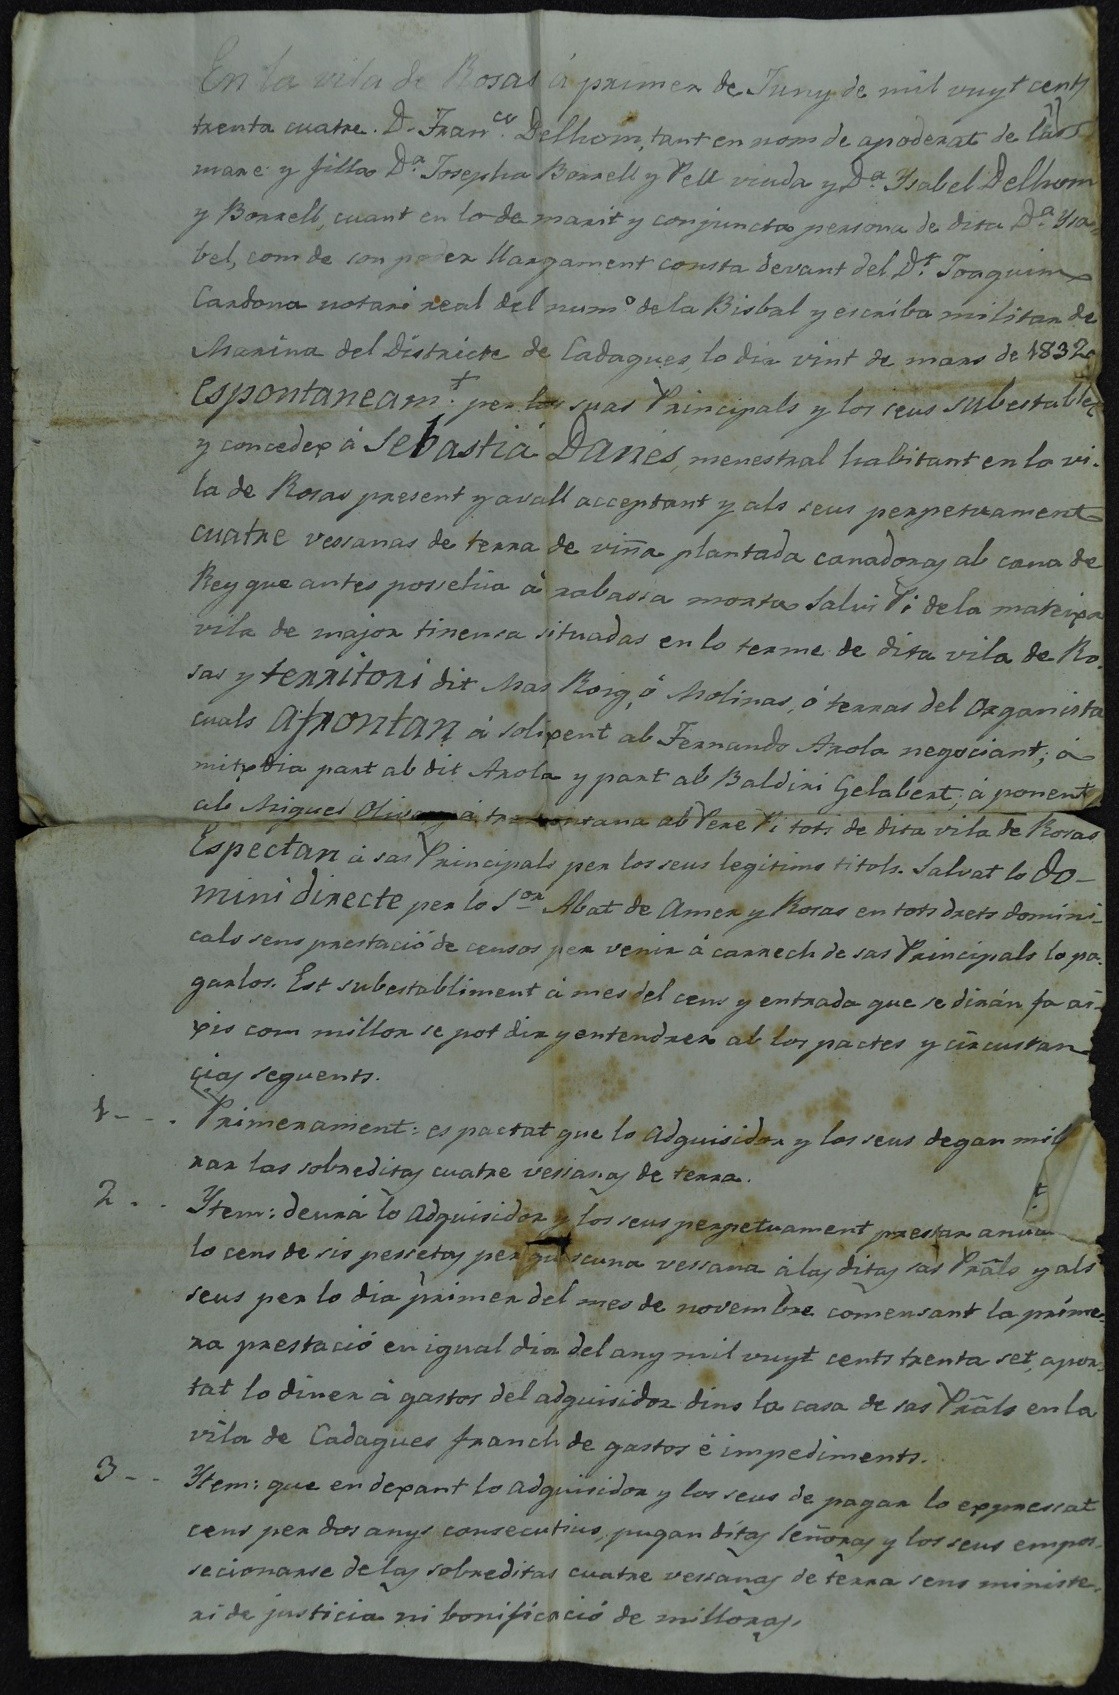 En la vila de Rosas á primer de Juny de mil vuyt cents
trenta cuatre. D. Franco. Delhom, tant en nom de apoderat de las
mare y filla Da. Josepha Borrell y Pell viuda y Da. Ysabel Delhom
y Borrell, cuant en lo de marit y conjuncta persona de dita Da. Ysa-
bel, com de son poder llargament consta devant del Dt. Joaquim
Cardona notari real del numo de la Bisbal y escriba militar de
Marina del Districte de Cadaques, lo dia vint de mars de 1832
espontaneamt. per las suas Principals y los seus subestableix
y concedex á Sebastiá Danies, menestral habitant en la vi-
la de Rosas present y avall acceptant y als seus perpetuament
cuatre vessanas de terra de viña plantada canadoras ab cana de
Rey que antes possehia á rabassa morta Salvi Pi de la mateixa
vila de major tinensa situadas en lo terme de dita vila de Ro-
sas y territori dit Mas Roig, ó Molinas, ó terras del Organista
cuals afrontan á solixent ab Fernando Arola negociant; á
mitxdia part ab dit Arola y part ab Baldiri Gelabert; á ponent
ab Miguel Olivas y á tramontana ab Pere Pi tots de dita vila de Rosas
Espectan á sas Principals per los seus legitims titols. Salvat lo do-
mini directe per lo Sor. Abat de Amer y Rosas en tots drets domini-
cals sens prestació de censos per venir á carrech de sas Principals lo pa-
garlos. Est subestabliment á mes del cens y entrada que se dirán fa ai-
xis com millor se pot dir y entendrer ab los pactes y circustan-
cias seguents.
1 - - . Primerament: es pactat que lo adquisidor y los seus degan millo
rar las sobreditas cuatre vessanas de terra.
2 - - Ytem: deurá lo adquisidor y los seus perpetuament prestar anual
lo cens de sis pessetas per quiscuna vessana á las ditas sas Prals y als
seus per lo dia primer del mes de novembre comensant la prime-
ra prestació en igual dia del any mil vuyt cents trenta set, apor-
tat lo diner á gastos del adquisidor dins la casa de sas Prals en la
vila de Cadaques franch de gastos é impediments.
3 - - Ytem: que en dexant lo adquisidor y los seus de pagar lo expressat
cens per dos anys consecutius, pugan ditas Señoras y los seus empos-
secionarse de las sobreditas cuatre vessanas de terra sens ministe-
ri de justicia ni bonificació de milloras.